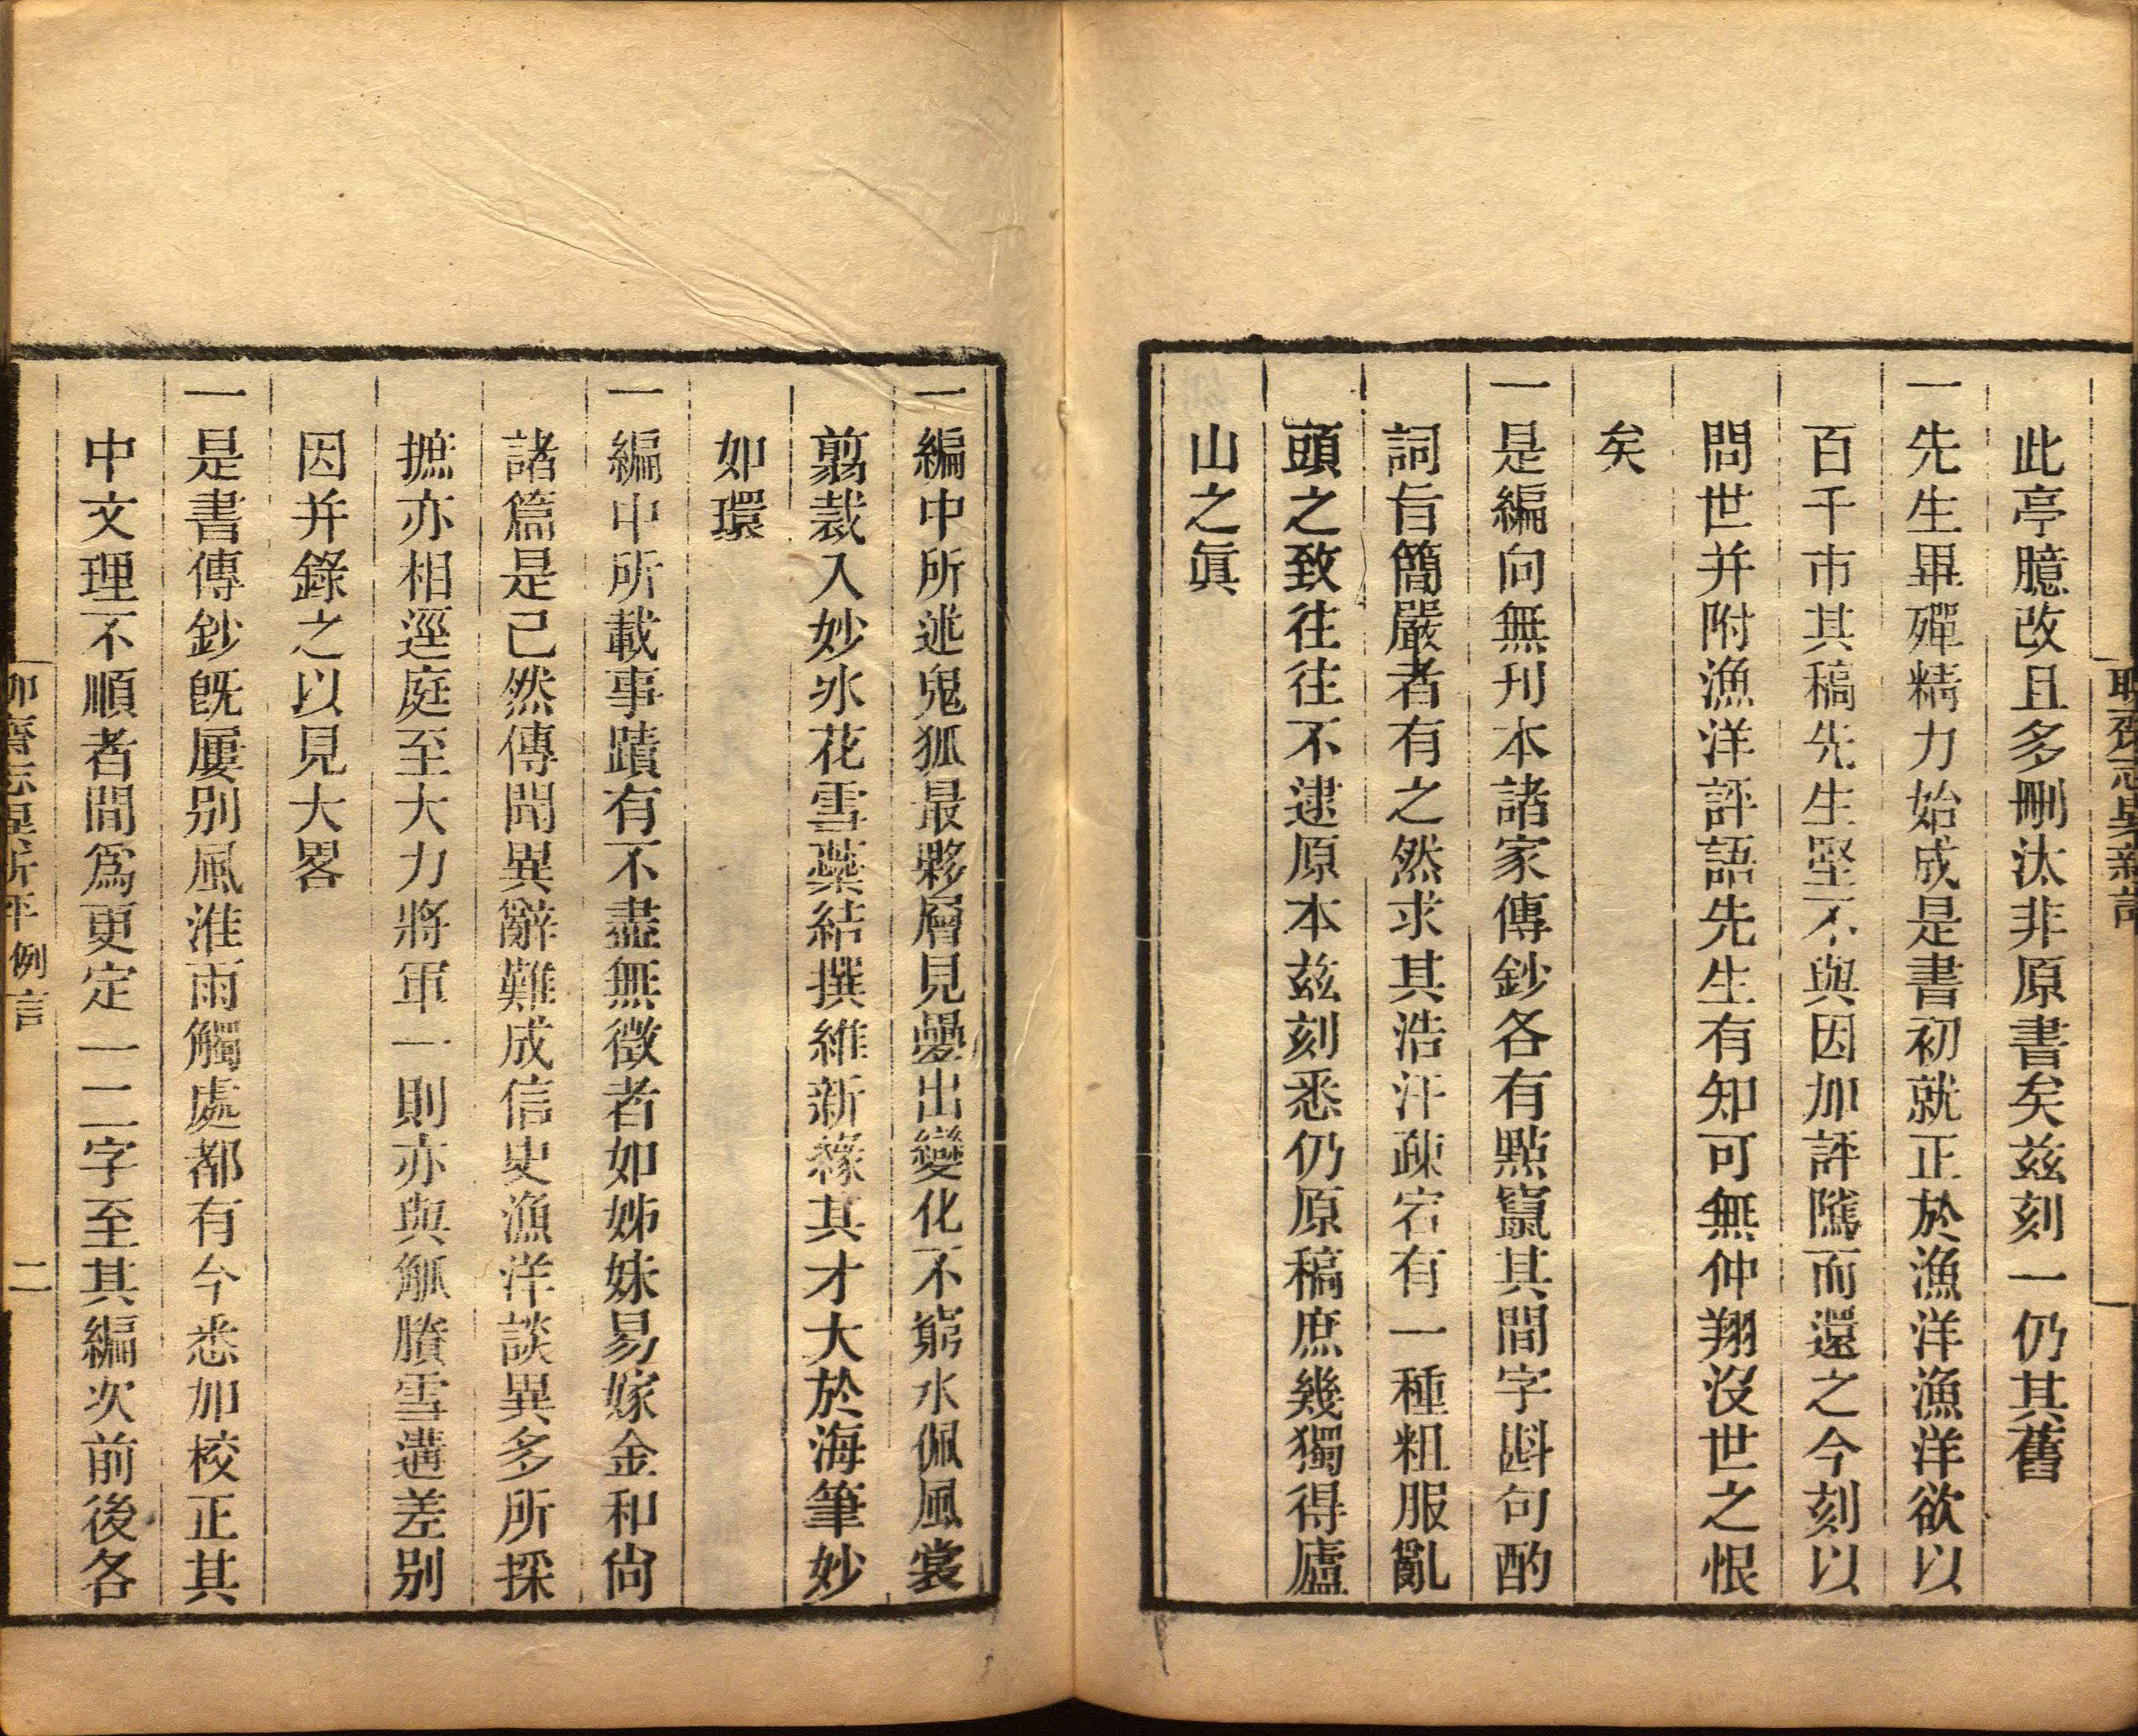 此亭臆改且多刪汰非原書矣茲刻一仍其舊
一先生畢殫精力始成是書初就正於漁洋漁洋欲以
百千市其稿先生堅不與因加評隲而還之今刻以
問世并附漁洋評語先生有知可無仲翔沒世之恨
矣
一是編向無刊本諸家傳鈔各有點竄其間字斟句酌
詞旨簡嚴者有之然求其浩汗疎宕有一種粗服亂
頭之致往往不逮原本茲刻悉仍原稿庶幾獨得廬
山之眞
一編中所述鬼狐最夥層見疊出變化不窮水佩風裳
翦裁入妙冰花雪蘂結撰維新緣其才大於海筆妙
如環
一編中所載事蹟有不盡無徵者如姊妹易嫁金和尚
諸篇是已然傳聞異辭難成信史漁洋談異多所採
摭亦相逕庭至大力將軍一則亦與觚賸雪遘差别
因并錄之以見大畧
一是書傳鈔旣屢别風淮雨觸處都有今悉加校正其
中文理不順者間爲更定一二字至其編次前後各
聊齋志異新評
例言
二